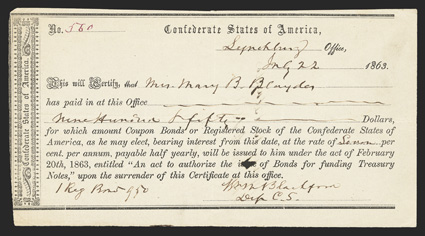 No. 560
Confederate States of America,
Lynchburg Office,
July 22 1863.
This will Certify, that Mrs. Mary B. Blaydes
has paid in at this Office
Nine Hundred & fifty Dollars,
for which amount Coupon Bonds or Registered Stock of the Confederate States of
America, as he may elect, bearing interest from this date, at the rate of Seven per
cent. per annum, payable half yearly, will be issued to him under the act of February
20th, 1863, entitled "An act to authorize the issue of Bonds for funding Treasury
Notes," upon the surrender of this Certificate at this office.
1 Reg Bond 950 Wm M Blackford
Dep C.S.
Confederate States of America.